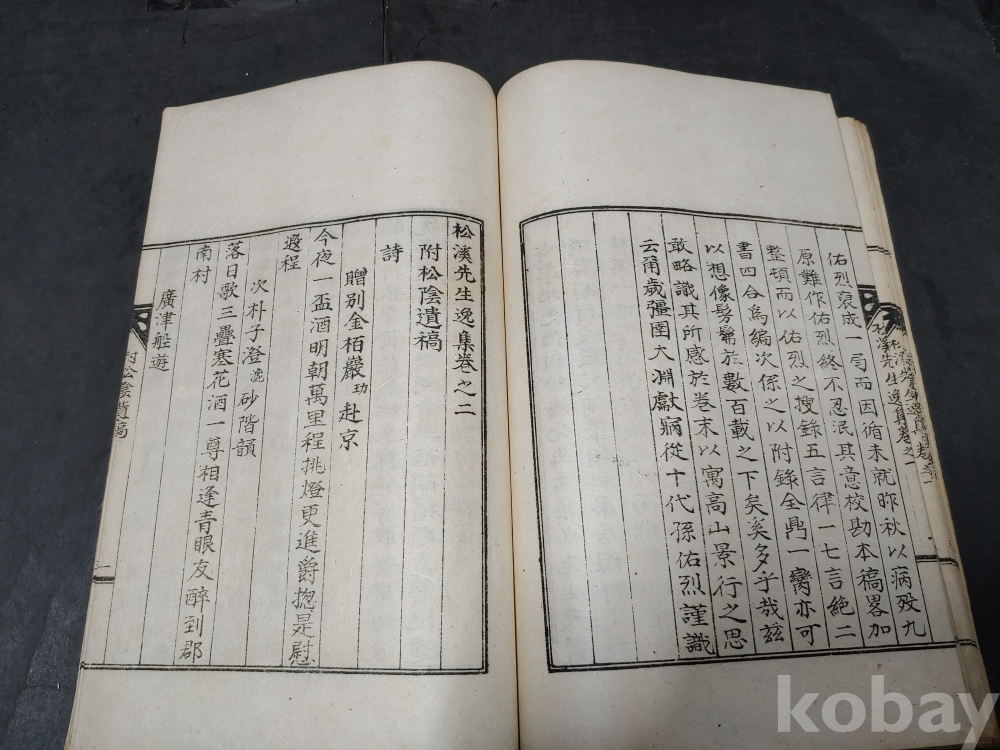 佑烈裒成一局而因循未就昨秋以病歿九
原難作佑烈終不忍泯其意校勘本稿畧加
整頓而以佑烈之搜錄五言律一七言絶二
書四合為編次係之以附錄全鼎一臠亦可
以想像髣髴於數百載之下矣奚多乎哉玆
敢略識其所感於卷末以寓高山景行之思
云爾歲彊圉大淵獻寎從十代孫佑烈謹識
松溪先生逸集卷之一
松溪先生逸集卷之二
附松陰遺稿
詩
贈別金栢巖玏赴京
今夜一盃酒明朝萬里程挑燈更進爵揔是慰
邊程
次朴子澄漉砂階韻
落日歌三疊寒花酒一尊相逢青眼友醉到郡
南村
廣津船遊
附松陰遺稿
一
kobay